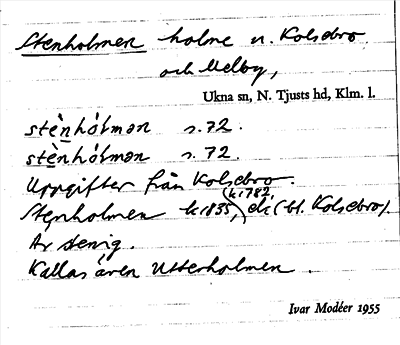 Stenholmen holme n. Kolsebro
och Melby,
Ukna sn, N. Tjusts hd, Klm. l.
stènhólmən s. 72.
stènhólmən s. 72.
Uppgifter från Kolsebro.
(k 1782,
Stenholmen k 1835), ek (bl. Kolsebro).
Är stenig.
Kallas även Utterholmen.
Ivar Modéer 1955